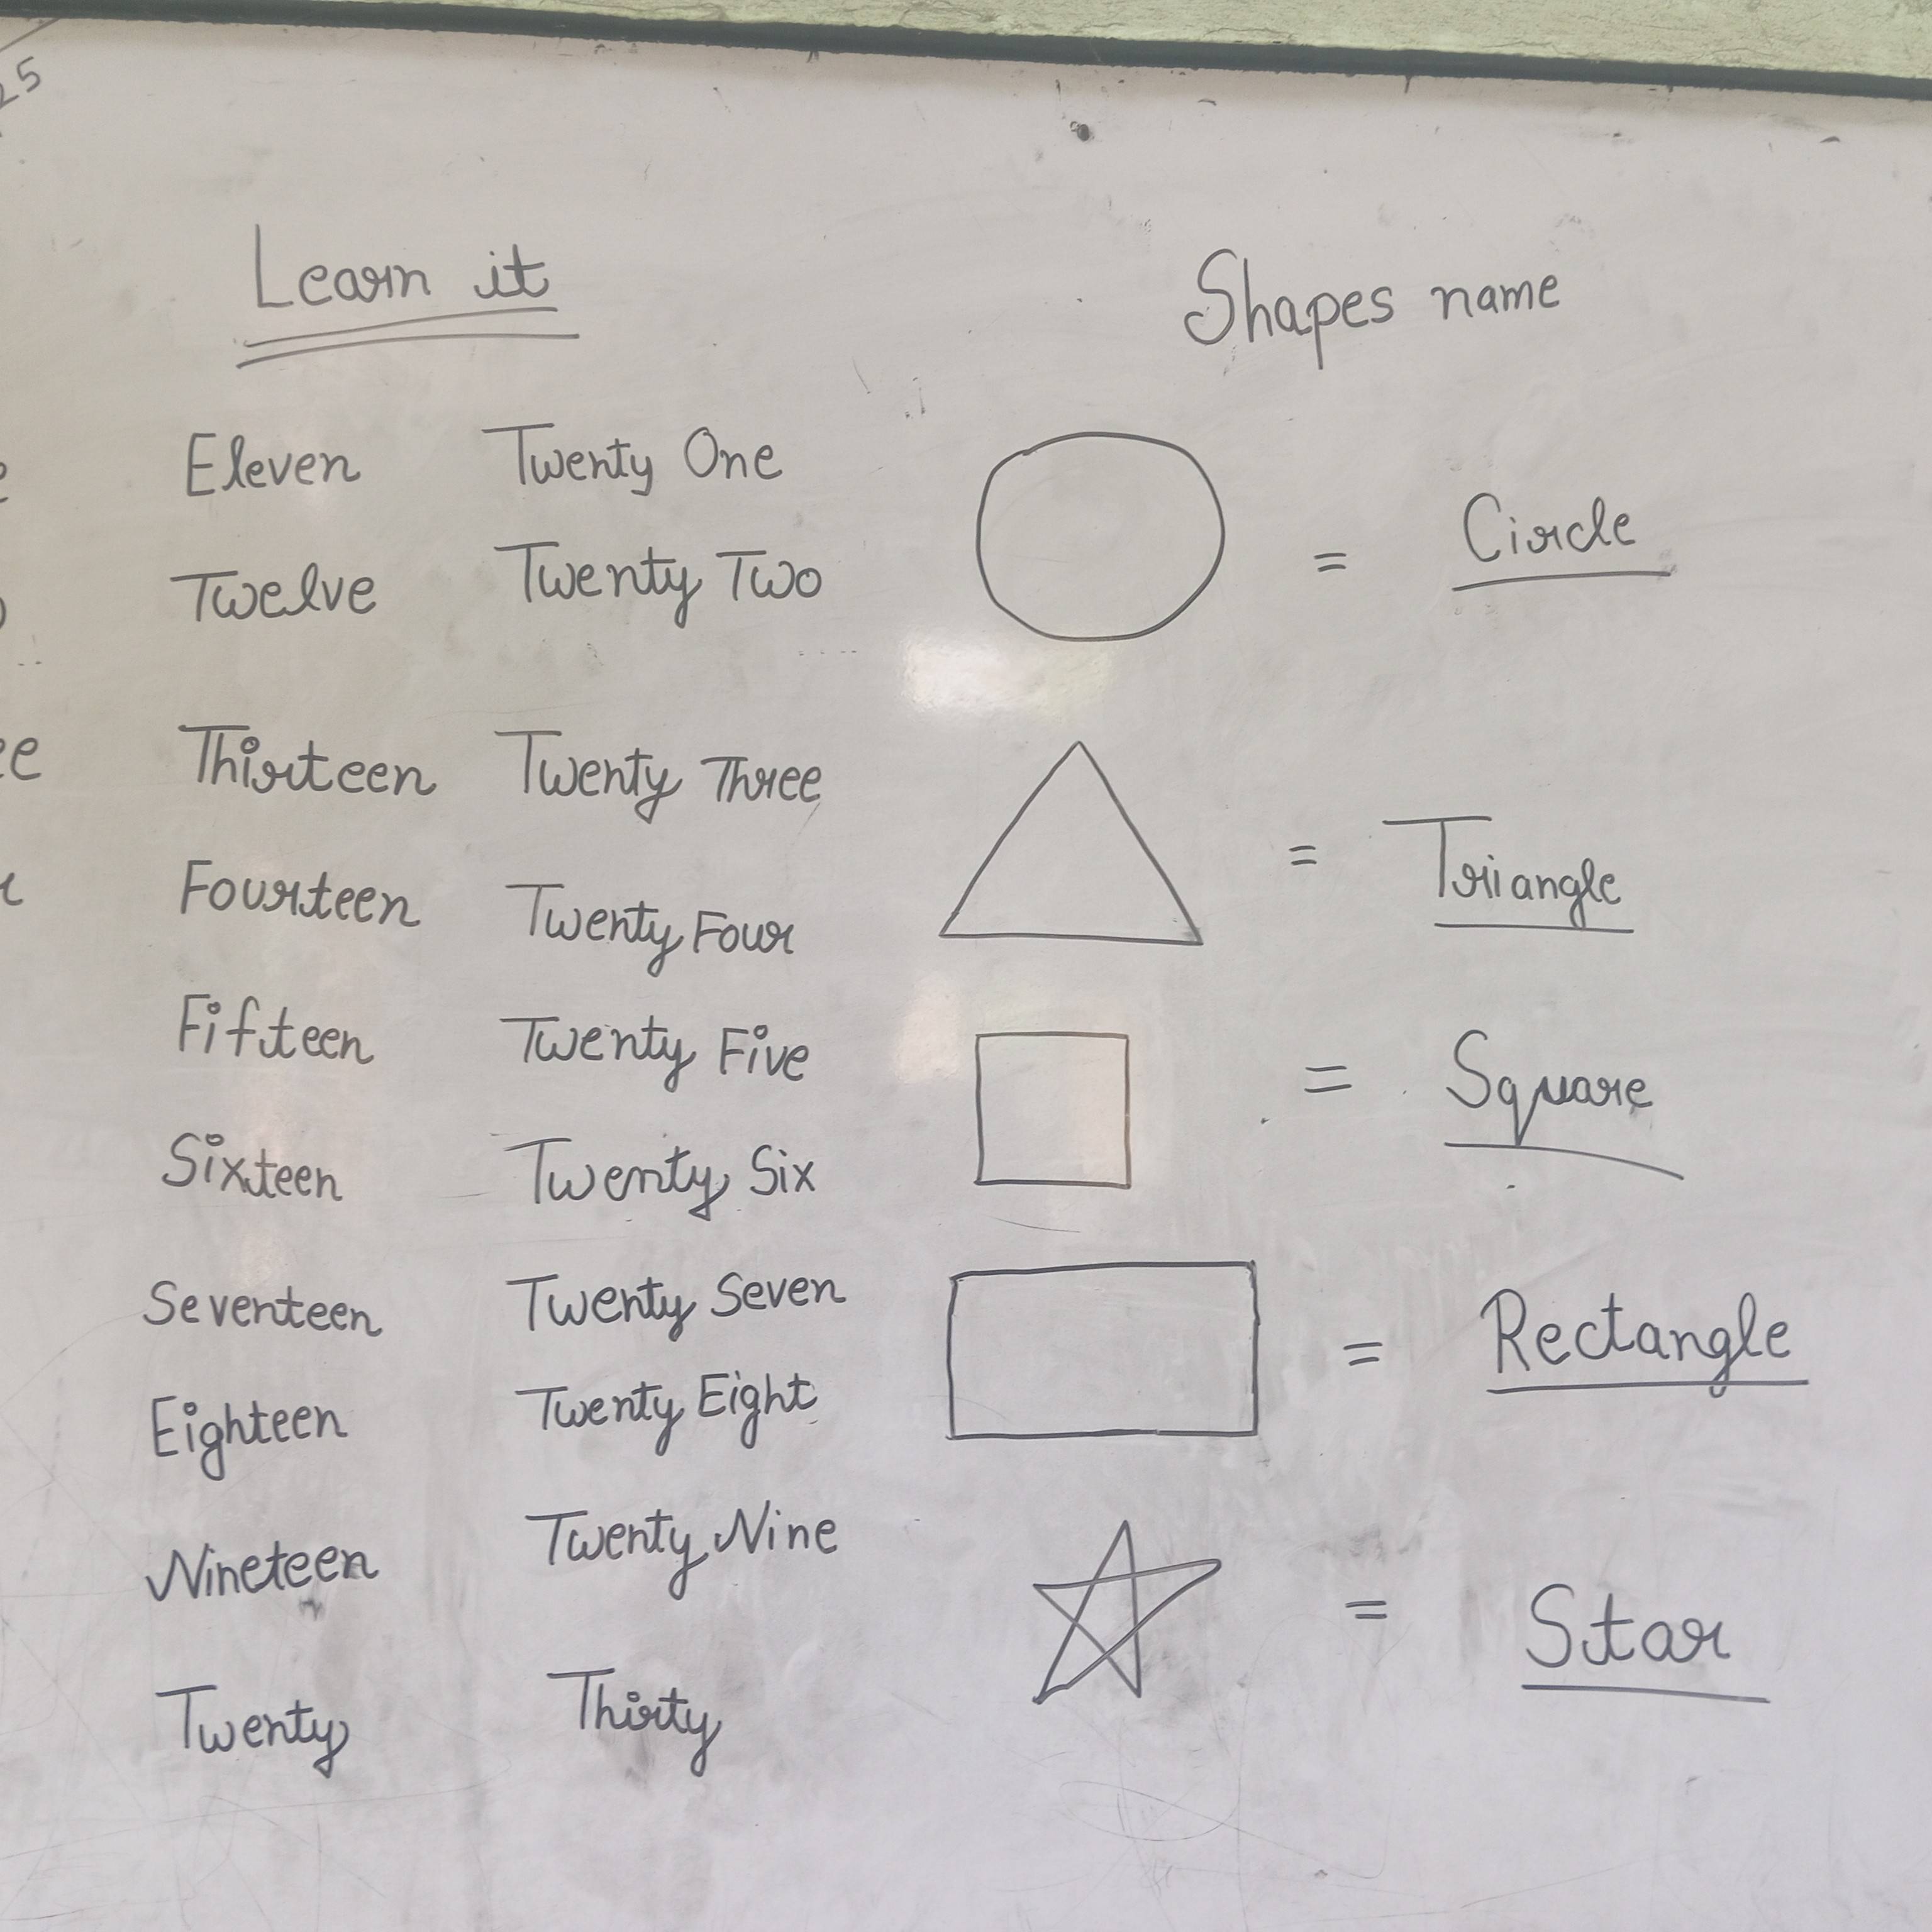 25
Learn it
Eleven
Twelve
Thirteen
Fourteen
Fifteen
Sixteen
Seventeen
Eighteen
Nineteen
Twenty
Twenty One
Twenty Two
Twenty Three
Twenty Four
Twenty Five
Twenty Six
Twenty Seven
Twenty Eight
Twenty Nine
Thirty
Shapes name
= Circle
= Triangle
= Square
= Rectangle
= Star